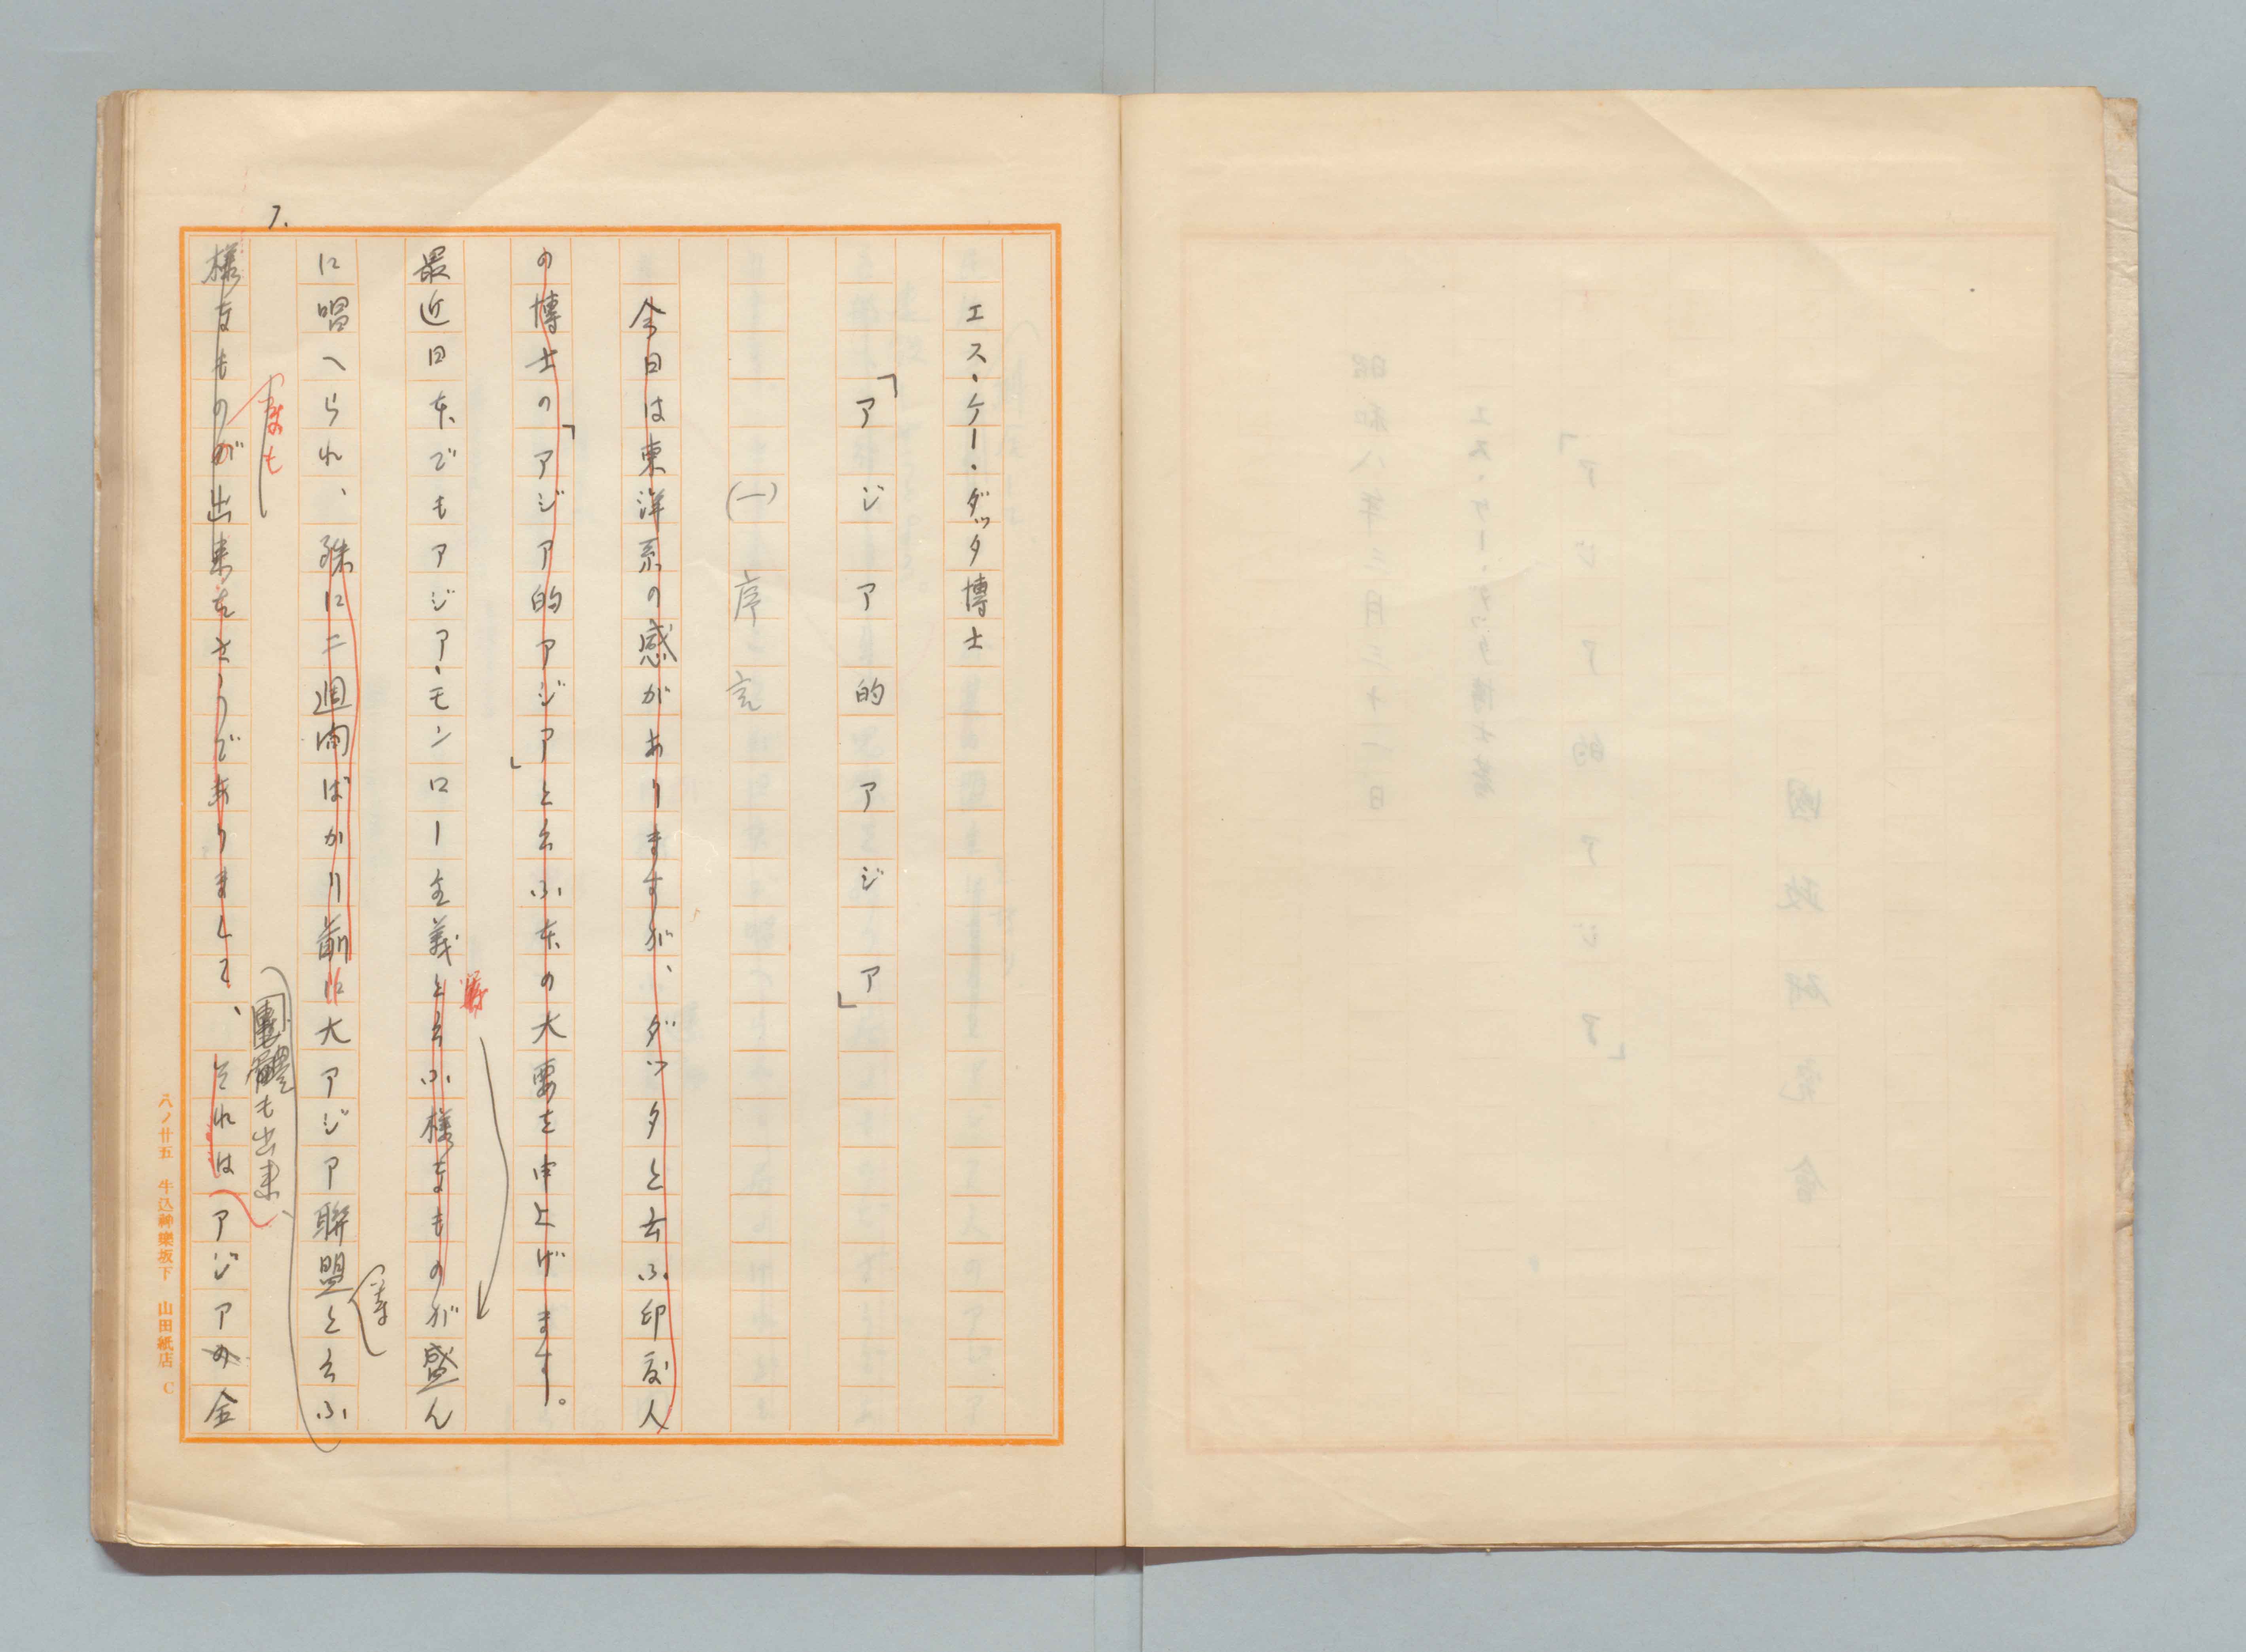 國政研究會
「アジア的アジア」
エス・ケー・ダッタ博士著
昭和八年三月三十一日
エス・ケー・ダッタ博士
「アジア的アジア」
(一) 序言
今日は東洋系の感がありますが、ダッタと云ふ印度人
の博士の「アジア的アジア」と云ふ本の大要を申上げます。
最近日本でもアジア・モンロー主義と云ふ様なものが盛ん
等
に唱へられ、殊に二週間ばかり前に大アジア聯盟と云ふ
なも
團體も出来、
様なものが出来たさうでありまして、それはアジアの全
7.
八ノ廿五 牛込神樂坂下 山田紙店 C